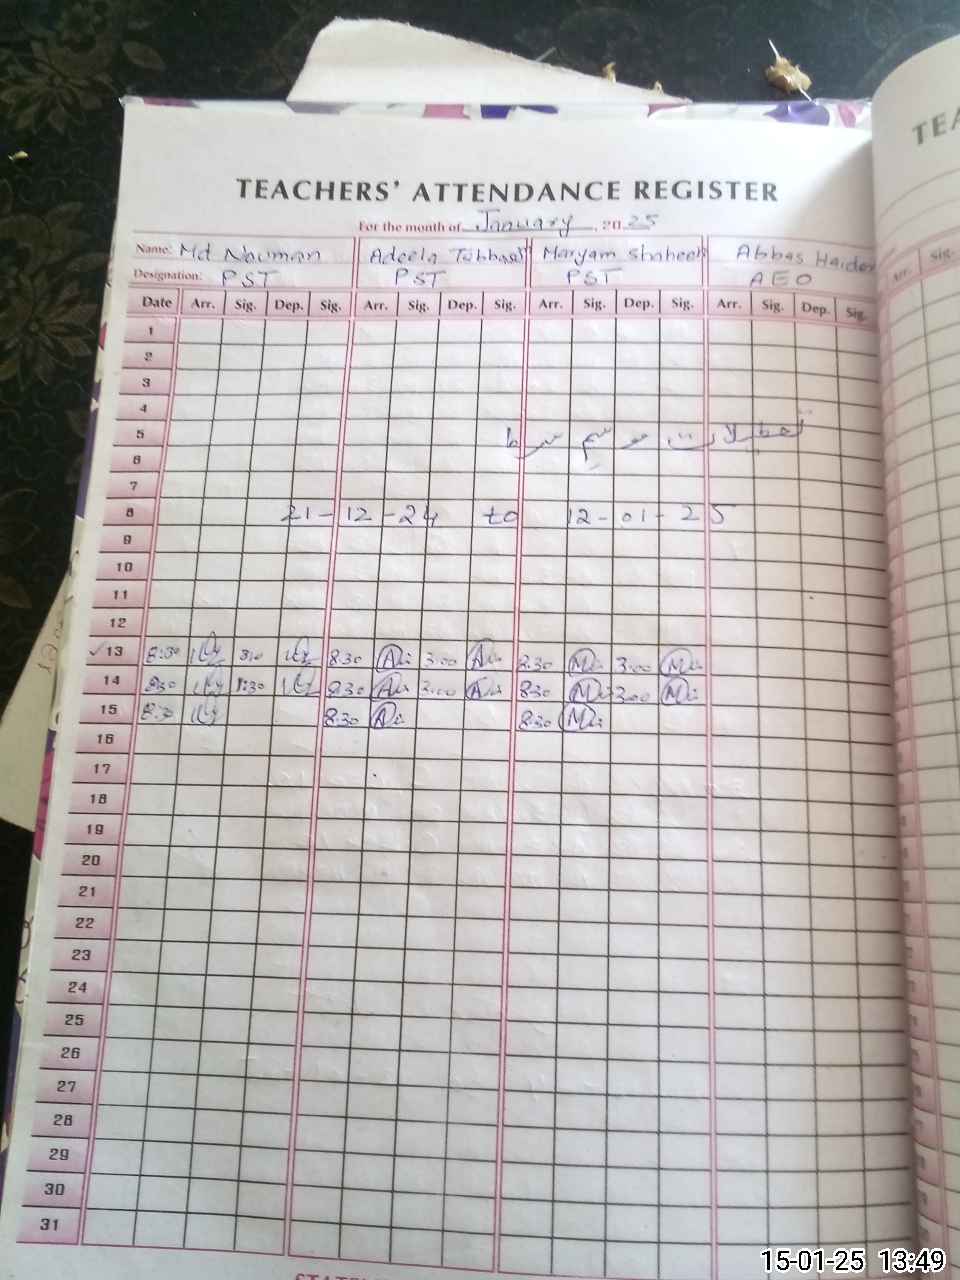 TEACHERS' ATTENDANCE REGISTER
For the month of January, 2025
Name: Md Nouman Adeela Maryam Shaheen Abbas Haider
Designation: PST PST PST AEO
Date Arr. Sig. Dep. Sig. Arr. Sig. Dep. Sig. Arr. Sig. Dep. Sig. Arr. Sig. Dep. Sig.
1
2
3
4
5 تعطیلات موسم سرما
6
7
8 21-12-24 to 12-01-25
9
10
11
12
13 8:30 8.30 3.00 8.30 3.00
14 8:30 1:30 8.30 3.00 8.30 3.00
15 8:30 8.30 8.30
16
17
18
19
20
21
22
23
24
25
26
27
28
29
30
31
TEA
Arr. Sig.
15-01-25 13:49